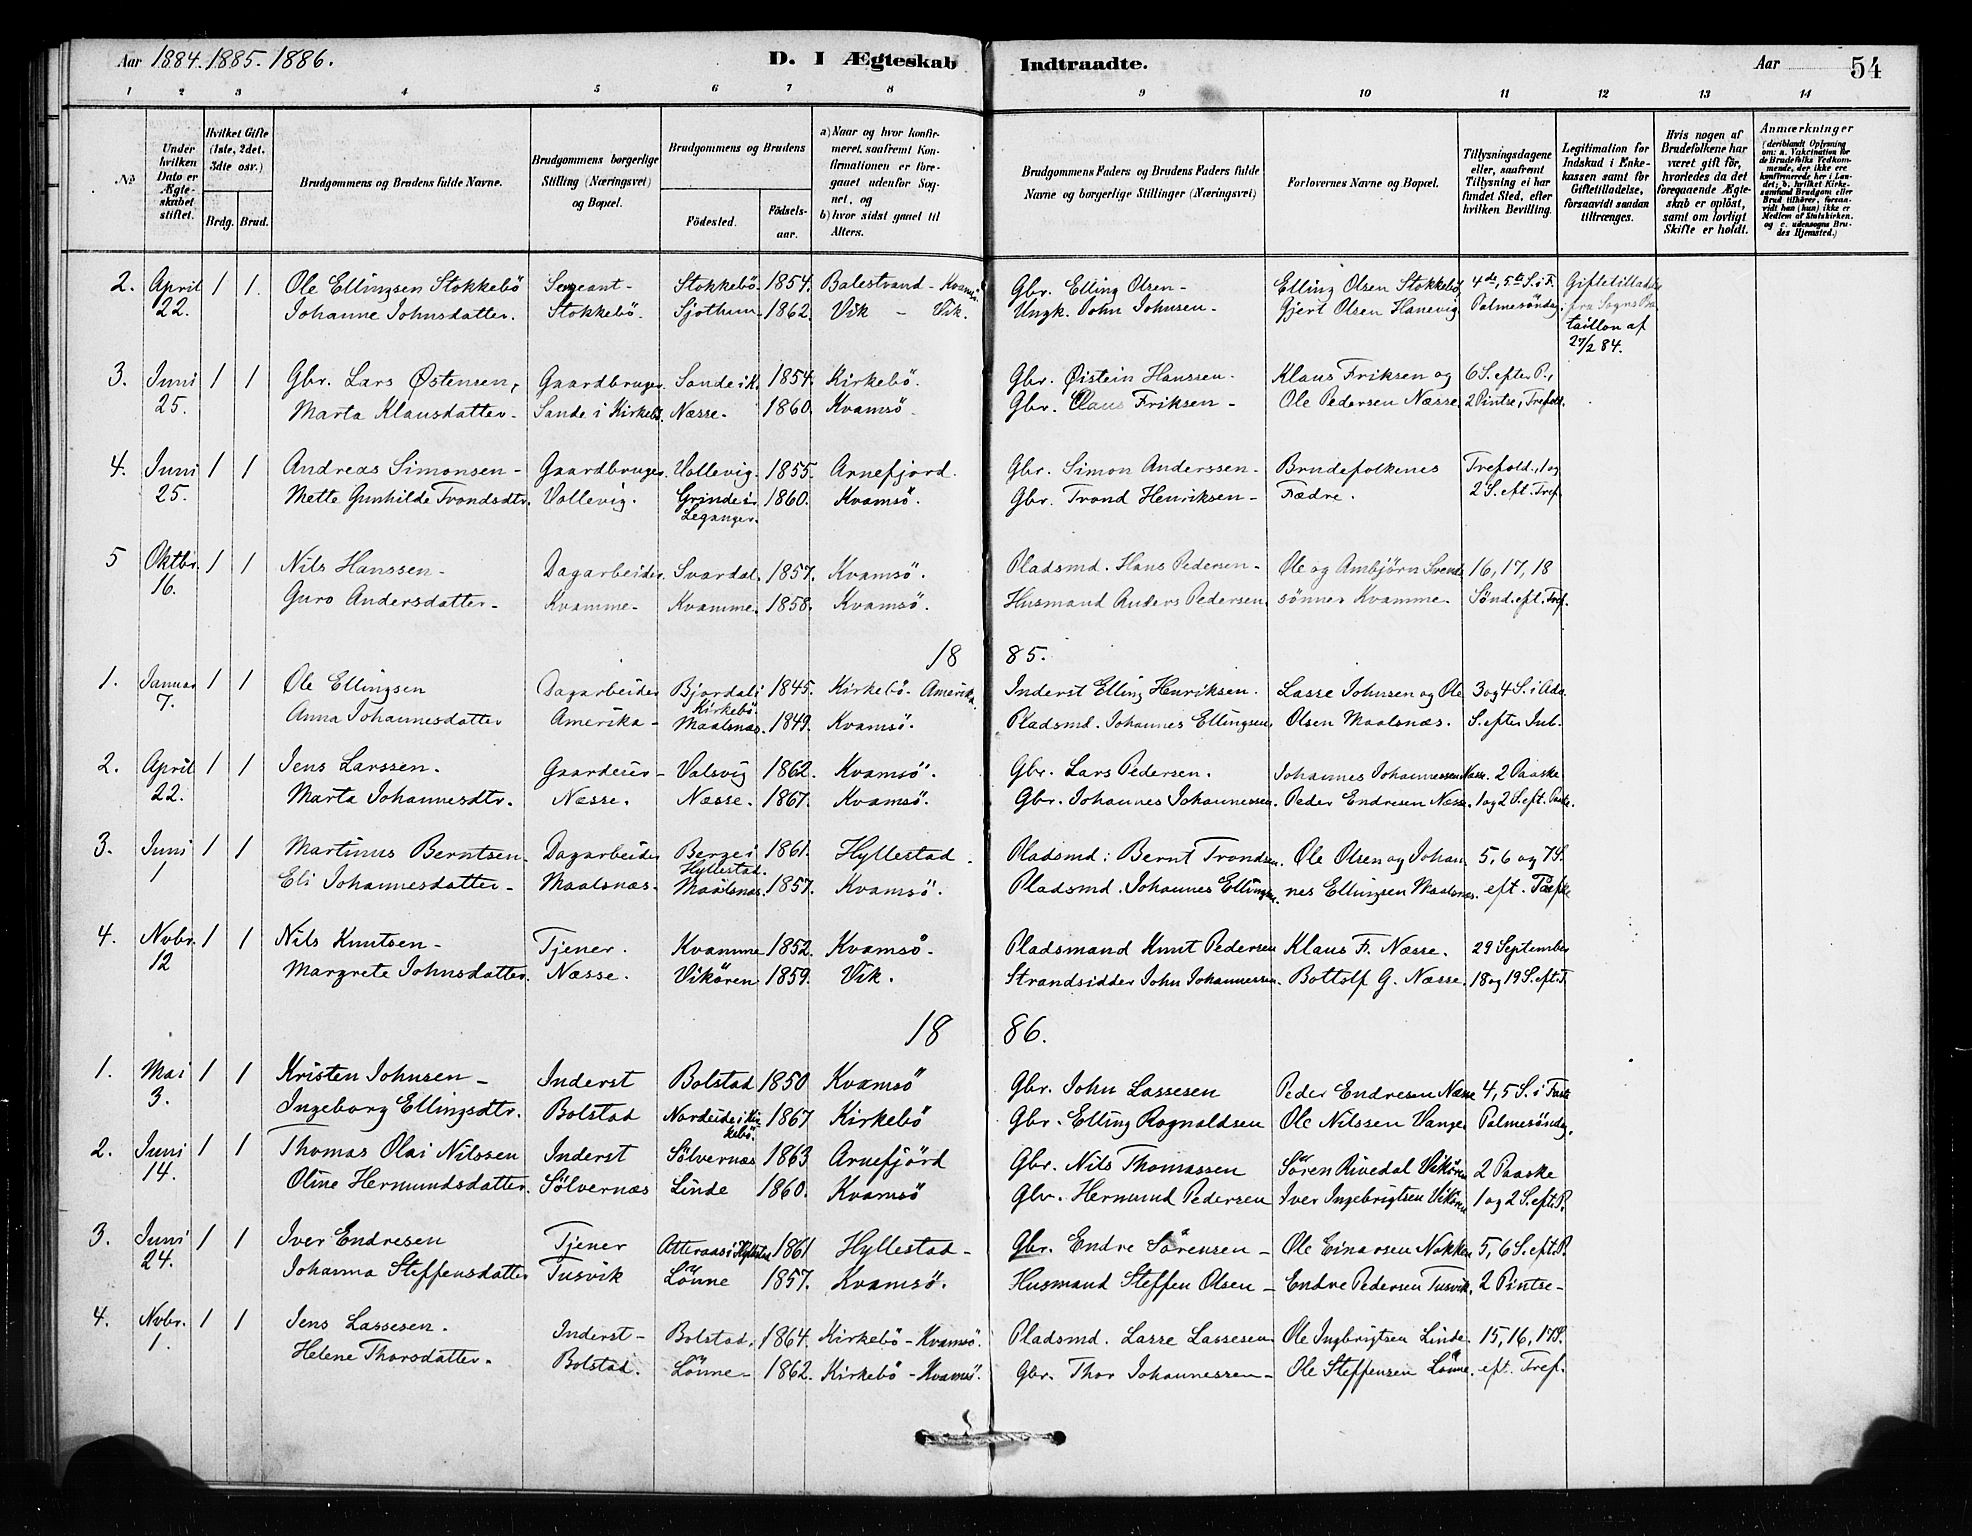 Aar 1884. 1885. 1886. D. I Ægteskab Indtraadte. Aar 54
1 2 3 4 5 6 7 8 9 10 11 12 13 14
No.
Under hvilken Dato er Ægteskabet stiftet.
Hvilket Gifte (1ste, 2det, 3die osv.)
Brdg. Brud.
Brudgommens og Brudens fulde Navne.
Brudgommens borgerlige Stilling (Næringsvei) og Bopæl.
Brudgommens og Brudens
Fødested. Fødselsaar.
a) Naar og hvor konfirmeret, saafremt Konfirmationen er foregaaet udenfor Sognet, og
b) hvor sidst gaaet til Alters.
Brudgommens Faders og Brudens Faders fulde Navne og borgerlige Stillinger (Næringsvei)
Forlovernes Navne og Bopæl.
Tillysningsdagene eller, saafremt Tillysning ei har fundet Sted, efter hvilken Bevilling.
Legitimation for Indskud i Enkekassen samt for Giftetilladelse, forsaavidt saadan tiltrænges.
Hvis nogen af Brudefolkene har været gift før, hvorledes da det foregaaende Ægteskab er opløst, samt om lovligt Skifte er holdt.
Anmærkninger
2. April 1 1. Ole Ellingsen Stokkebö Sergeant- Stokkebö. 1854. Balestrand - Kvamsö. Gbr. Elling Olsen - Elling Olsen Stokkebö 4de, 5te S. i F. Giftetilladelse
22. Johanne Johnsdatter. Stokkebö. Sjothun- 1862. Vik - Vik. Ungk. John Johnsen - Gjert Olsen Hanevig Palmesöndag. fra Sogns Ba
taillon af
27/2 84.
3. Juni 1 1 Gbr. Lars Østensen, Gaardbruger Sande i K. 1854. Kirkebö. Gbr. Øistein Hanssen - Klaus Friksen og 6 S. efter P.,
25. Marta Klausdatter - Sande i Kirkebö. Næsse. 1860. Kvamsö. Gbr. Claus Friksen - Ole Pedersen Næsse. 2 Pintse, Trefold.
4. Juni 1 1 Andreas Simonsen - Gaardbruger. Vollevig. 1855. Arnefjord. Gbr. Simon Anderssen - Brudefolkenes Trefold., 1 og
25. Mette Gunhilde Trondsdtr. Vollevig. Grinde i Leganger. 1860. Kvamsö. Gbr. Trond Henriksen - Fædre. 2 S. eft. Tref.
5 Oktbr. 1 1 Nils Hanssen - Dagarbeider. Svardal. 1857. Kvamsö. Pladsmd. Hans Pedersen - Ole og Ambjörn Svend 16, 17, 18
16. Guro Andersdatter - Kvamme - Kvamme. 1858. Kvamsö. Husmand Anders Pedersen. sönner Kvamme. Sönd. eft. Tref.
18 85.
1. Januar 1 1 Ole Ellingsen Dagarbeider Bjordal i Kirkebö. 1845. Kirkebö. Amerika. Inderst Elling Henriksen. Lasse Johnsen og Ole 3 og 4 S. i Adv.
7. Anna Johannesdatter Amerika - Maalsnæs. 1849. Kvamsö. Pladsmd. Johannes Ellingsen. Olsen Maalsnæs. S. efter Jub.
2. April 1 1 Jens Larssen. Gaardeier - Valsvig 1862. Kvamsö. Gbr. Lars Pedersen. Johannes Johannessen Næsse. 2 Paaske
22. Marta Johannesdtr. Næsse. Næsse. 1867. Kvamsö. Gbr. Johannes Johannessen. Peder Endresen Næsse. 1 og 2 S. eft. Paaske.
3. Juni 1 1 Martinus Berntsen. Dagarbeider Berge i Hyllestad. 1861. Hyllestad. Pladsmd: Bernt Trondsen. Ole Olsen og Johan 5, 6 og 7 S.
1 Eli Johannesdatter - Maalsnæs. Maalsnæs. 1857. Kvamsö. Pladsmd. Johannes Ellingsen. nes Ellingsen Maalsnæs. eft. Paaske
4. Nvbr. 1 1 Nils Knutsen - Tjener. Kvamme 1852. Kvamsö. Pladsmand Knut Pedersen Klaus F. Næsse. 29 September
12 Margrete Johnsdatter. Næsse. Vikören 1859. Vik. Strandsidder John Johannessen. Bottolf G. Næsse. 18 og 19 S. eft. T.
18 86.
1. Mai 1 1 Kristen Johnsen - Inderst Bolstad 1850 Kvamsö Gbr. John Lassesen Peder Endresen Næsse 4, 5 S. i Faste
3. Ingeborg Ellingsdtr. Bolstad Nordeide i Kirkebö. 1867 Kirkebö Gbr. Elling Rognaldsen Ole Nilssen Vange Palmesöndag.
2. Juni 1 1 Thomas Olai Nilssen Inderst Sölvernæs 1863 Arnefjörd Gbr. Nils Thomassen Sören Rivedal Vikören 2 Paaske
14. Oline Hermundsdatter. Sölvernæs Linde 1860. Kvamsö Gbr. Hermund Pedersen Iver Ingebrigtsen Vikören 1 og 2 S. eft. P.
3. Juni 1 1 Iver Endresen Tjener Atteraas i Hyllestad 1861 Hyllestad - Gbr. Endre Sörensen - Ole Einarsen Nokken 5, 6 S. eft. P.
24. Johanna Steffensdatter Tusvik Lönne 1857. Kvamsö. Husmand Steffen Olsen - Endre Pedersen Tusvik. 2 Pintse -
4. Nvbr. 1 1 Jens Lassesen. Inderst - Bolstad. 1864. Kirkebö - Kvamsö. Pladsmd. Lasse Lassesen Ole Ingbrigtsen Linde. 15, 16, 17 S.
1. Helene Thorsdatter. Bolstad. Lönne - 1862. Kirkebö - Kvamsö. Gbr. Thor Johannessen - Ole Steffensen Lönne. eft. Tref.